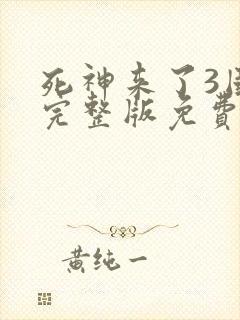 死神来了3
完整版免费
黄纯一